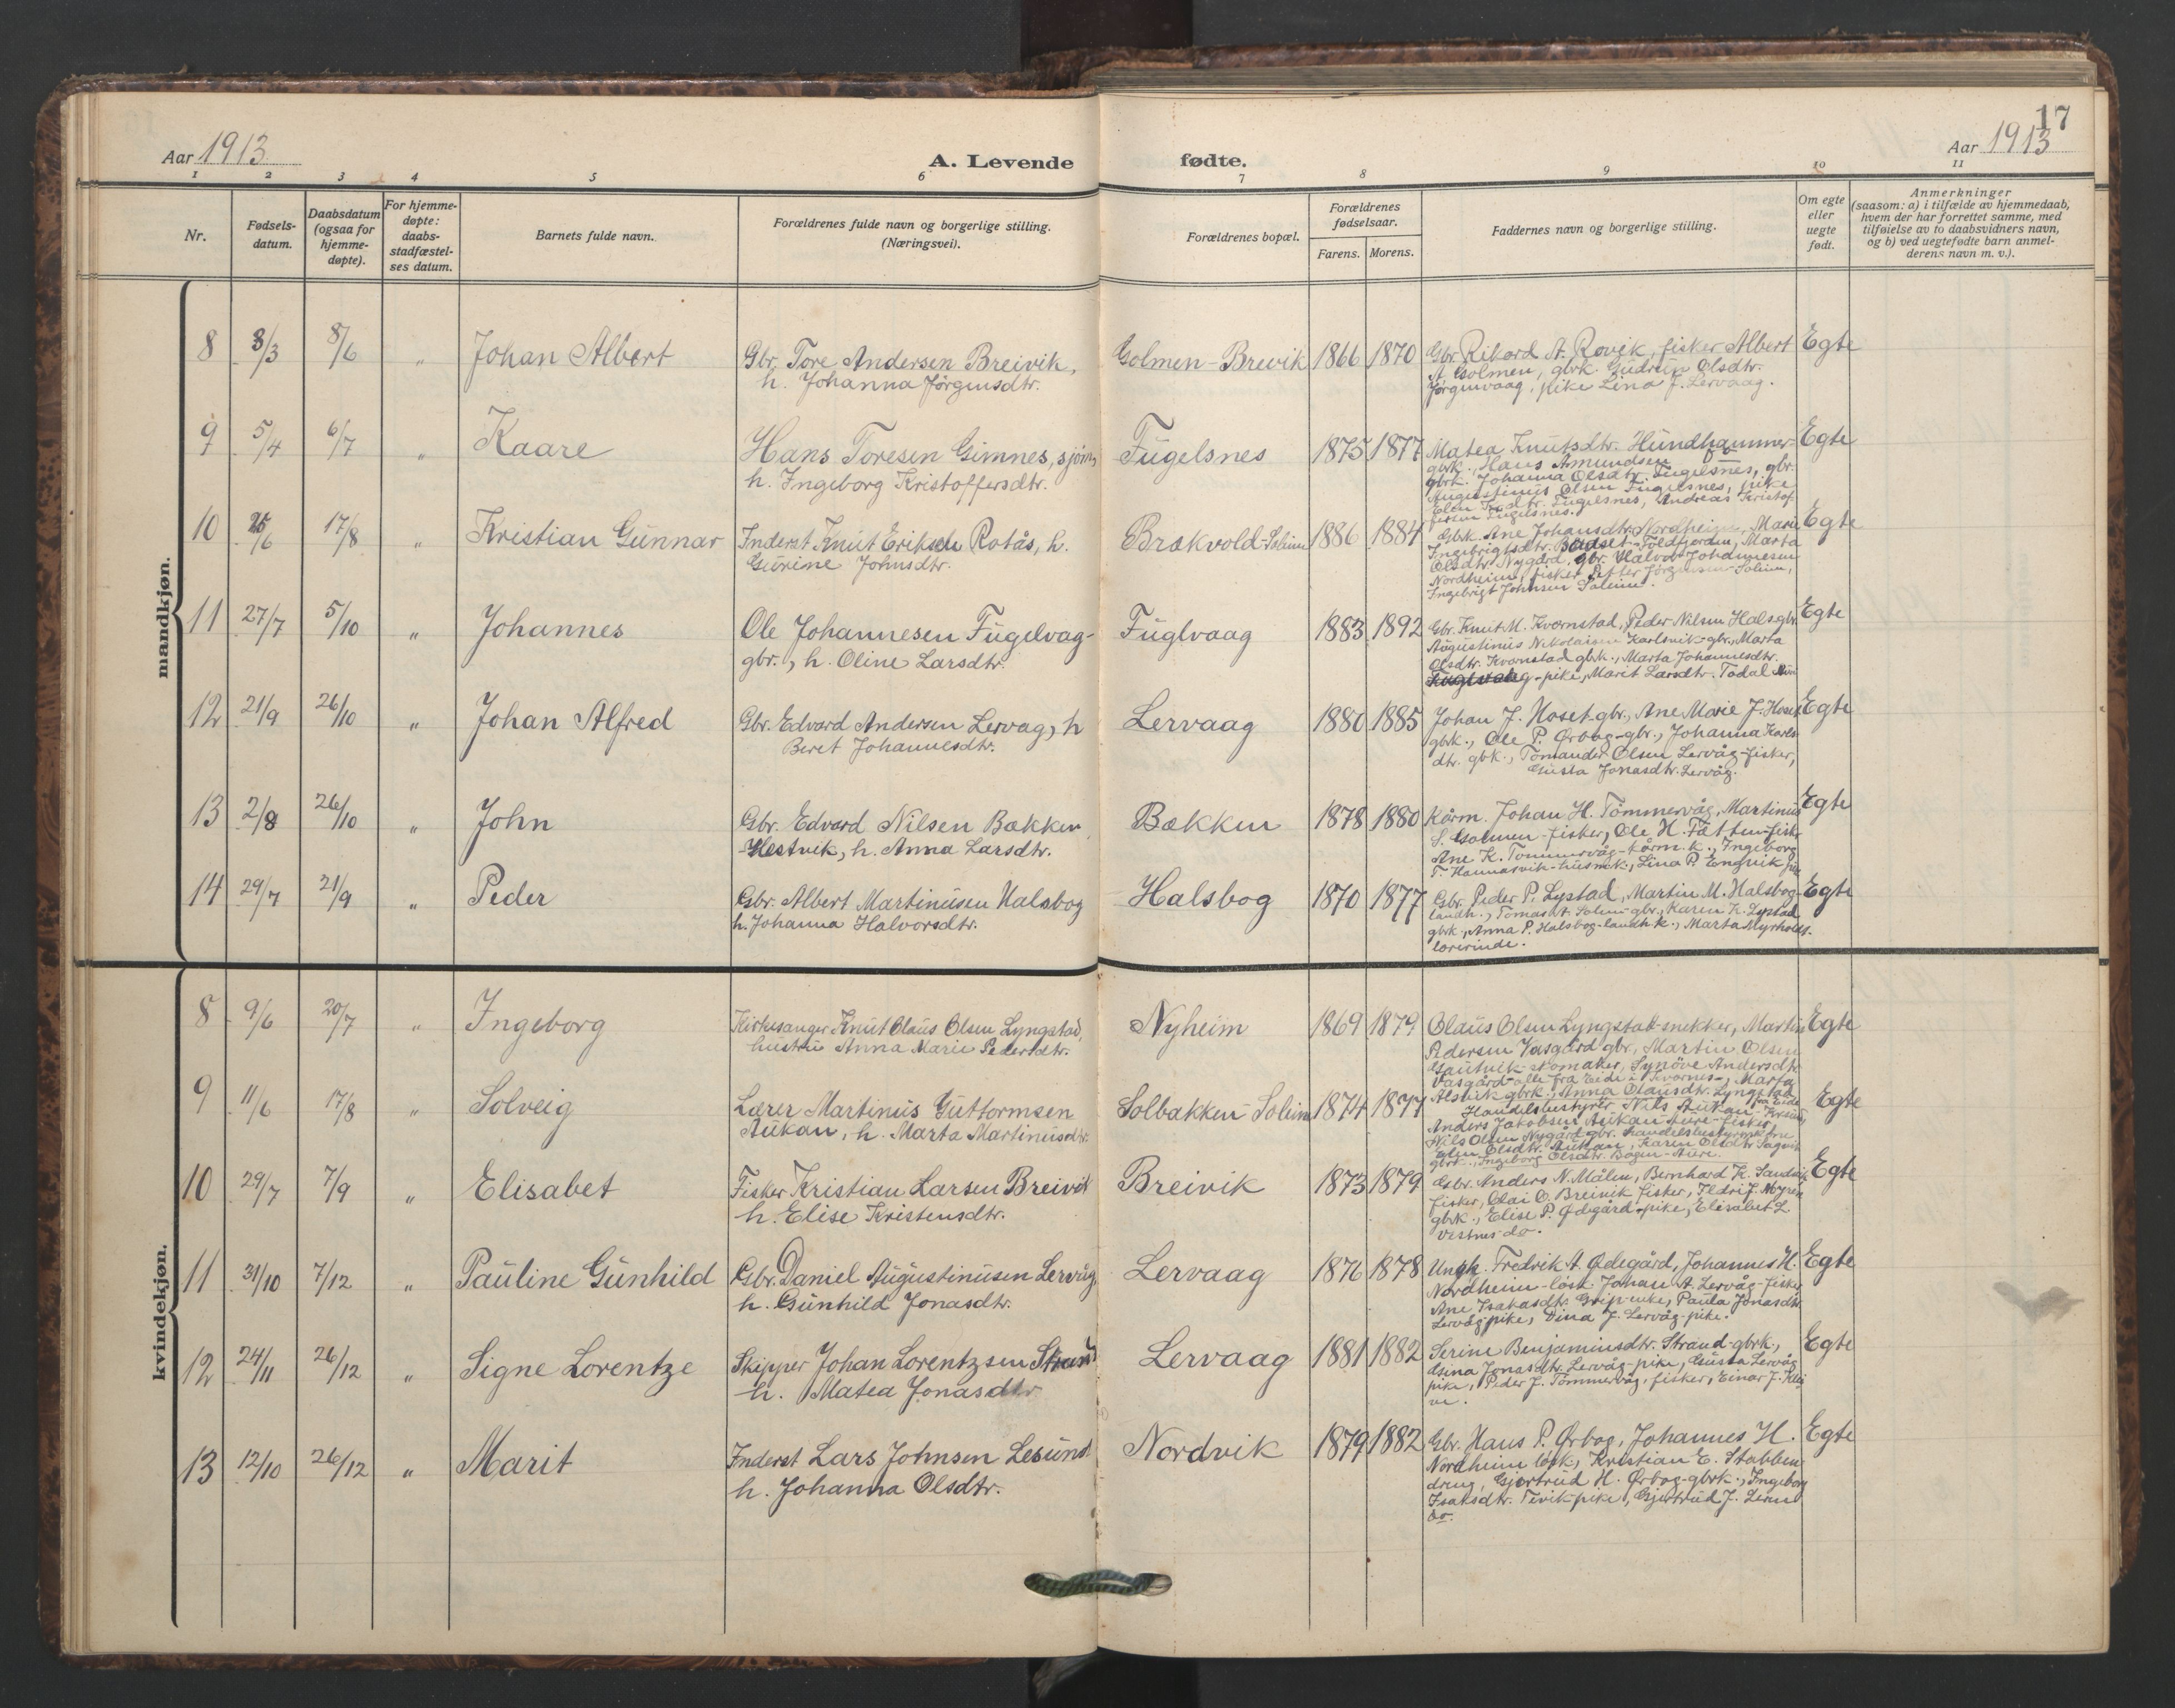 17
Aar 1913
A. Levende fødte.
Aar 1913
1 2 3 4 5 6 7 8 9 10 11
Nr.
Fødsels-
datum.
Daabsdatum
(ogsaa for
hjemme-
døpte).
For hjemme-
døpte:
daabs-
stadfæstel-
ses datum.
Barnets fulde navn.
Forældrenes fulde navn og borgerlige stilling.
(Næringsvei).
Forældrenes bopæl.
Forældrenes
fødselsaar.
Farens. Morens.
Faddernes navn og borgerlige stilling.
Om egte
eller
uegte
født.
Anmerkninger
(saasom: a) i tilfælde av hjemmedaab,
hvem der har forrettet samme, med
tilføielse av to daabsvidners navn,
og b) ved uegtefødte barn anmel-
derens navn m. v.).
mandkjøn.
8 8/3 8/6 " Johan Albert
Gbr. Tore Andersen Breivik,
h. Johanna Jörgensdtr.
Golmen-Brevik 1866 1870
Gbr. Rikard A. Rovik, fisker Albert
A. Golmen, gbrk. Gudrun Olsdtr.
Jörgenvaag, pike Lina J. Lervaag.
Egte
9 5/4 6/7 " Kaare
Hans Toresen Gimnes, sjöm,
h. Ingeborg Kristoffersdtr.
Fugelsnes 1875 1877
Matea Knutsdtr. Hundhammer-
gbrk., Hans Amundsen
gbrk. Johanna Olsdtr. Fugelsnes, gbr.
Augustinus Olsen Fugelsnes, pike
Fugelsnes, Andreas Kristof-
fersen Fugelsnes.
Egte
10 /6 17/8 " Kristian Gunnar
Inderst Knut Eriksen Rotås, h.
Gurine Johnsdtr.
Brakvold-Soleim 1886 1884
Gbrk. Ane Johansdtr. Nordheim, Marie
Ingebrigtsdtr. Foldfjorden, Marta
Olsdtr. Nygård, Gbr. Halvor Johannesen
Nordheim, fisker Petter Jörgensen-Soleim,
Ingebrigt Johnsen Soleim.
Egte
11 27/7 5/10 " Johannes
Ole Johannesen Fugelvag-
gbr., h. Oline Larsdtr.
Fuglvaag 1883 1892
Gbr. Knut M. Kvornstad, Peder Nilsen Hals-gbr.
Augustinus Nikolaisen Karlsvik-gbr., Marta
Olsdtr. Kvornstad gbrk., Marta Johannesdtr.
-pike, Marit Larsdtr. Todal
Egte
12 21/9 26/10 " Johan Alfred
Gbr. Edvard Andersen Lervag, h
Beret Johannesdtr.
Lervaag 1880 1885
Johan J. Hoset-gbr., Ane Marie J. Hoset
gbrk., Ole P. Ørbog-gbr., Johanna Karls-
dtr. gbk., Tomander Olsen Lervåg-fisker,
Gusta Jonasdtr. Lervåg.
Egte
13 2/8 26/10 " John
Gbr. Edvard Nilsen Bakken
-Hestvik, h. Anna Larsdtr.
Bakken 1878 1880
Kårm. Johan H. Tömmervåg, Martinus
S. Golmen-fisker, Ole H. Fætten-fisk.
Ane K. Tömmervåg-kårm.k., Ingeborg
T. Hannasvik-husm.k., Lina P. Engvik
Egte
14 29/7 21/9 " Peder
Gbr. Albert Martinusen Halsbog
h. Johanna Halvorsdtr.
Halsbog 1870 1877
Gbr. Peder P. Lystad, Martin M. Halsbog-
landh., Tomas A. Soleim-gbr., Karen K. Lystad
gbrk., Anna P. Halsbog-landh.k., Marta Myrhold-
lærerinde.
Egte
kvindekjøn.
8 9/6 20/7 " Ingeborg
Kirkesanger Knut Olaus Olsen Lyngstad,
hustru Anna Marie Pedersdtr.
Nyheim 1869 1879
Olaus Olsen Lyngstad-snekker, Martin
Pedersen Vasgård gbr., Martin Olsen
Gautvik-skomaker, Synöve Andersdtr.
Vasgård-alle fra Eide i Kvernes-, Marta
Alsvik gbrk., Anna Olausdtr. Lyngstad
Egte
9 11/6 17/8 " Solveig
Lærer Martinus Guttormsen
Aukan, h. Marta Martinusdtr.
Solbakken-Soleim 1874 1877
Handelsbestyrer Nils Aukan-Krsund,
Anders Jakobsen Aukan-Aure-fisker,
Nils Olsen Nygård gbr. handelsbestyrerfrue
Elen Olsdtr. Aukan, Karen Olsdtr. Sagvik
gbrk., Ingeborg Olsdtr. Bogen-Aure.
Egte
10 29/7 7/9 " Elisabet
Fisker Kristian Larsen Breivik
h. Elise Kristensdtr.
Breivik 1873 1879
Gbr. Anders N. Målen, Bernhard K. Sandvik
fisker, Olai O. Breivik fisker, Ildri J. Myren
gbrk., Elise P. Ødegård-pike, Elisabet L.
Vestnes-do.
Egte
11 31/10 7/12 " Pauline Gunhild
Gbr. Daniel Augustinusen Lervåg
h. Gunhild Jonasdtr.
Lervaag 1876 1878
Ungk. Fredrik A. Ødegård, Johannes H.
Nordheim-løsk. Johan A. Lervåg-fisker
Ane Isaksdtr. Grip-enke, Paula Jonasdtr.
Lervåg-pike, Dina J. Lervåg-pike.
Egte
12 24/11 26/12 " Signe Lorentze
Skipper Johan Lorentzsen Strand
h. Matea Jonasdtr
Lervaag 1881 1882
Serine Benjaminsdtr. Strand-gbrk.,
Gina Jonasdtr. Lervåg-pike, Gusta Lervåg
pike, Peder J. Tömmervåg, fisker, Einar J. Klei
ve.
Egte
13 12/10 26/12 " Marit
Inderst Lars Johnsen Lesund
h. Johanna Olsdtr.
Nordvik 1879 1882
Gbr. Hans P. Ørbog, Johannes H.
Nordheim løsk, Kristian E. Stabben
dreng, Gjertrud H. Ørbog-gbrk., Ingeborg
Isaksdtr. Tevik-pike, Gjertrud J. Lerm
do.
Egte